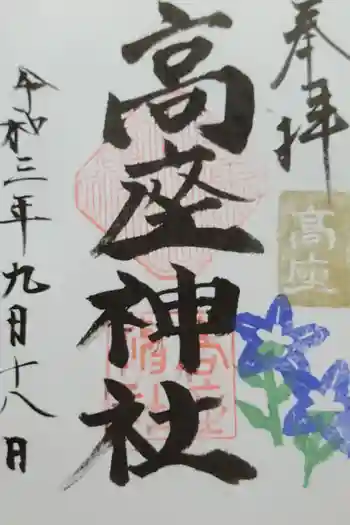 奉拝
高座
高座神社
令和三年九月十八日